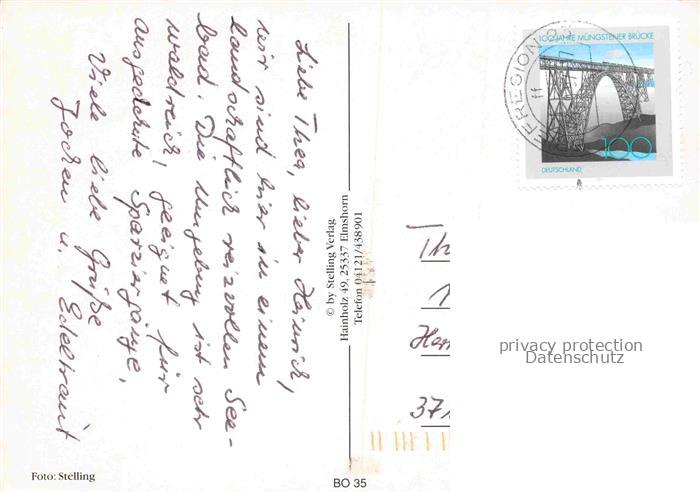 Liebe Thea, lieber Heinrich,
wir sind hier in einem
landschaftlich reizvollen See-
bad. Die Umgebung ist sehr
waldreich, geeignet für
ausgedehnte Spaziergänge.
Viele liebe Grüße
Jochen u. Edeltraut
Foto: Stelling
© by Stelling Verlag
Hainholz 49, 25337 Elmshorn
Telefon 04121/438901
BO 35
100 JAHRE MÜNGSTENER BRÜCKE
100
DEUTSCHLAND
BRIEFREGION
Th
1
371
privacy protection
Datenschutz